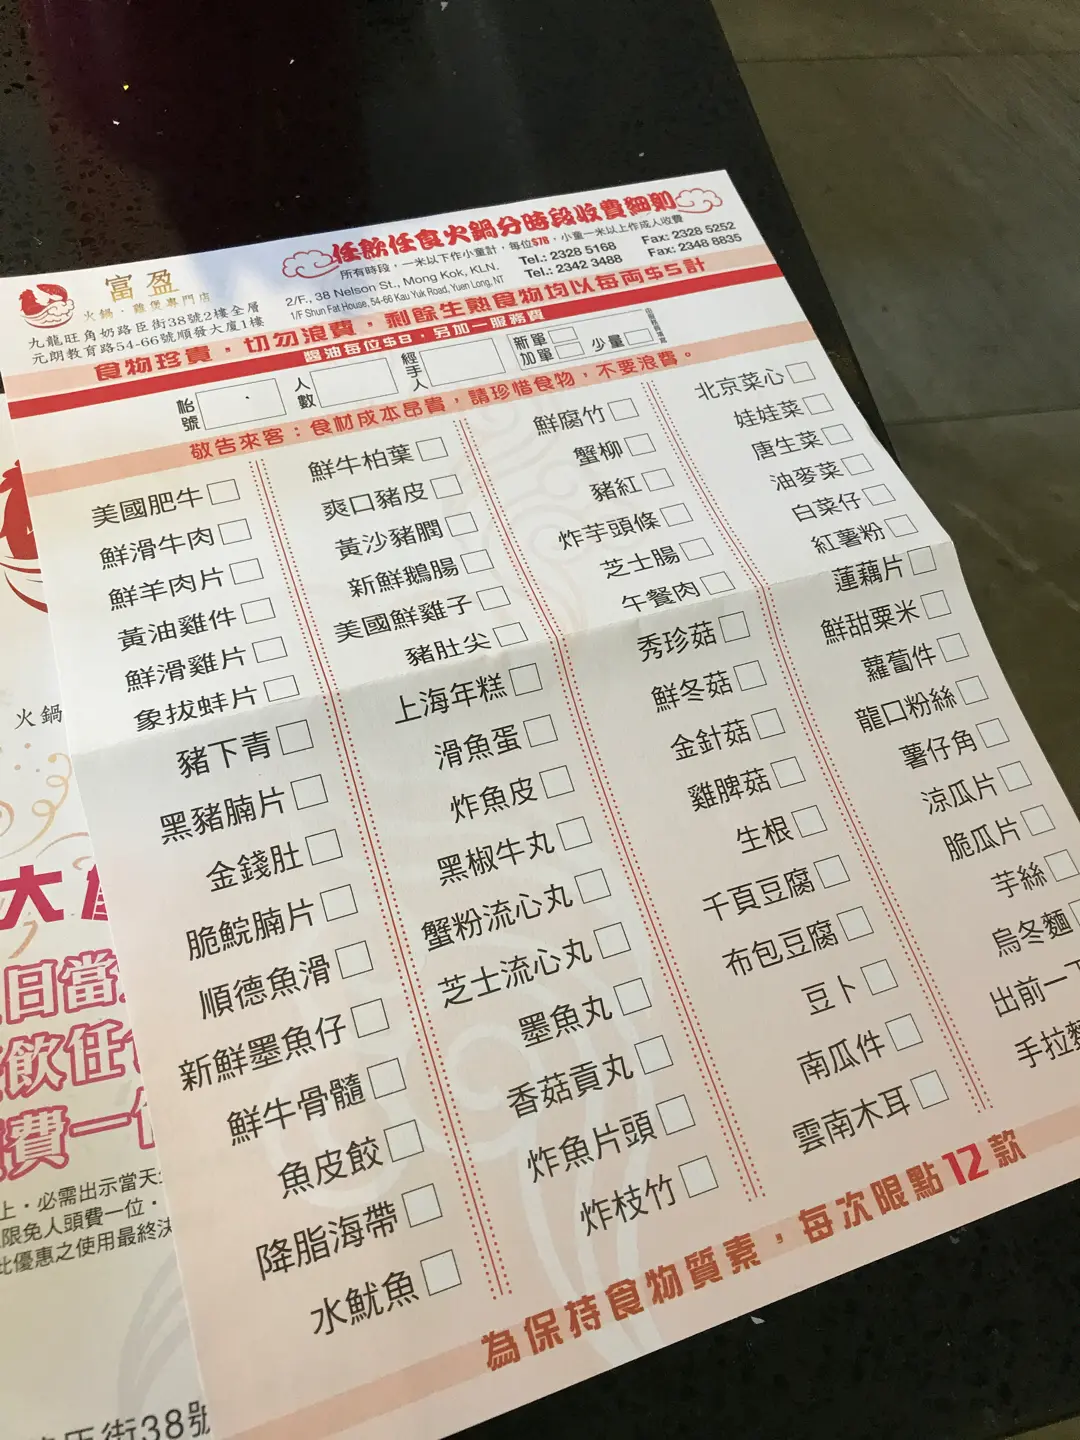 任飲任食火鍋分時段收費細則
所有時段，一米以下作小童計，每位$78，小童一米以上作成人收費
富盈
火鍋·雞煲專門店
九龍旺角奶路臣街38號2樓全層
元朗教育路54-66號順發大廈1樓
2/F., 38 Nelson St., Mong Kok, KLN.
1/F Shun Fat House, 54-66 Kau Yuk Road, Yuen Long, NT
Tel.: 2328 5168
Tel.: 2342 3488
Fax: 2328 5252
Fax: 2348 8835
食物珍貴，切勿浪費，剩餘生熟食物均以每両$5計
醬油每位$8，另加一服務費
枱號
人數
經手人
新單
加單
少量
敬告來客：食材成本昂貴，請珍惜食物，不要浪費。
美國肥牛
鮮滑牛肉
鮮羊肉片
黃油雞件
鮮滑雞片
象拔蚌片
豬下青
黑豬腩片
金錢肚
脆鯇腩片
順德魚滑
新鮮墨魚仔
鮮牛骨髓
魚皮餃
降脂海帶
水魷魚
鮮牛柏葉
爽口豬皮
黃沙豬膶
新鮮鵝腸
美國鮮雞子
豬肚尖
上海年糕
滑魚蛋
炸魚皮
黑椒牛丸
蟹粉流心丸
芝士流心丸
墨魚丸
香菇貢丸
炸魚片頭
炸枝竹
鮮腐竹
蟹柳
豬紅
炸芋頭條
芝士腸
午餐肉
秀珍菇
鮮冬菇
金針菇
雞脾菇
生根
千頁豆腐
布包豆腐
豆卜
南瓜件
雲南木耳
北京菜心
娃娃菜
唐生菜
油麥菜
白菜仔
紅薯粉
蓮藕片
鮮甜粟米
蘿蔔件
龍口粉絲
薯仔角
涼瓜片
脆瓜片
芋絲
烏冬麵
出前一
手拉麵
為保持食物質素，每次限點12款
火鍋
大
日當
飲任
費一
上，必需出示當天
限免人頭費一位，
此優惠之使用最終決
臣街38號